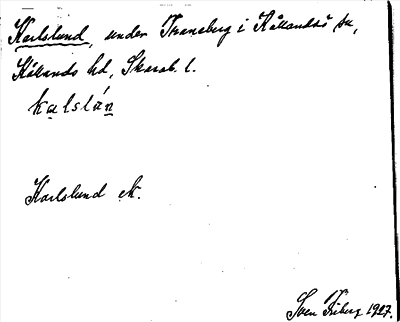 Karlslund, under Traneberg i Kållandsö sn,
Kållands hd, Skarab. l.
kalslán
Karlslund ek.
Sven Friberg 1927.